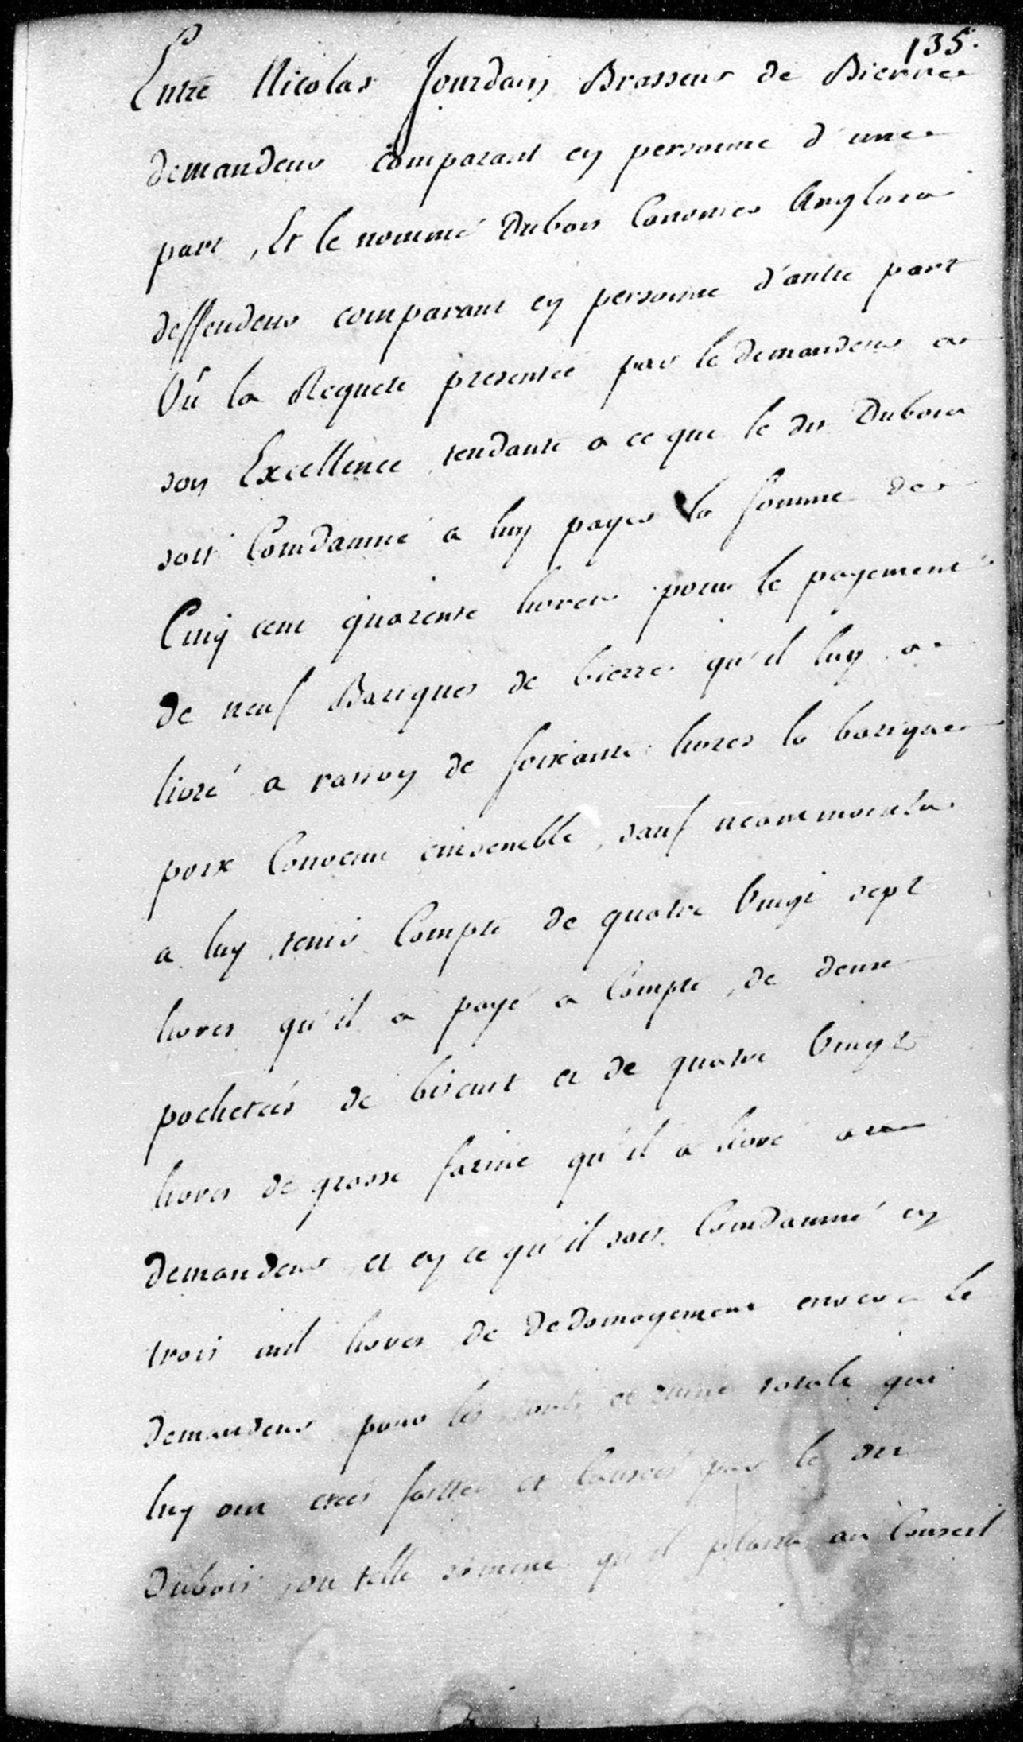 135.
Entre Nicolas Jourdain Brasseur de Bierre
demandeur comparant en personne d'une
part, Et le nommé Dubois Anglois
deffendeur comparant en personne d'autre part
Vû la Requete presentée par le demandeur a
son Excellence tendante a ce que le dit Dubois
soit Condamné a luy payer la somme de
Cinq cent quarente livres pour le payement
de neuf Bariques de bierre qu'il luy a
livré a raison de soixante livres la barique
prix Convenu ensemble, sauf neanmoins
a luy tenir Compte de quatre vingt sept
livres qu'il a payé a Compte, de deux
pochetées de biscuit et de quatre vingt
livres de grosse farine qu'il a livré au
demandeur et en ce qu'il soit Condamné en
trois mil livres de dedomagement envers le
demandeur pour les torts et totale qui
luy ont etées faittes et Causées par le dit
Dubois, ou telle somme qu'il plaira au Conseil